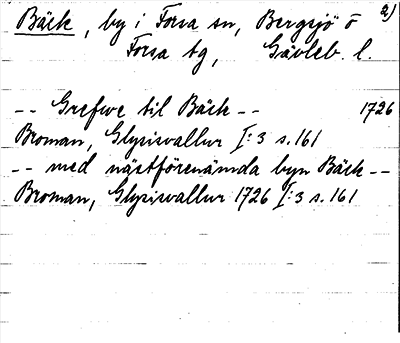 Bäck, by i Forsa sn, Bergsjö o 2)
Forsa tg, Gävleb. l.
-- Grefwe til Bäck -- 1726
Broman, Glysisvallur I:3 s. 161
-- med nästförenämda byn Bäck --
Broman, Glysisvallur 1726 I:3 s. 161